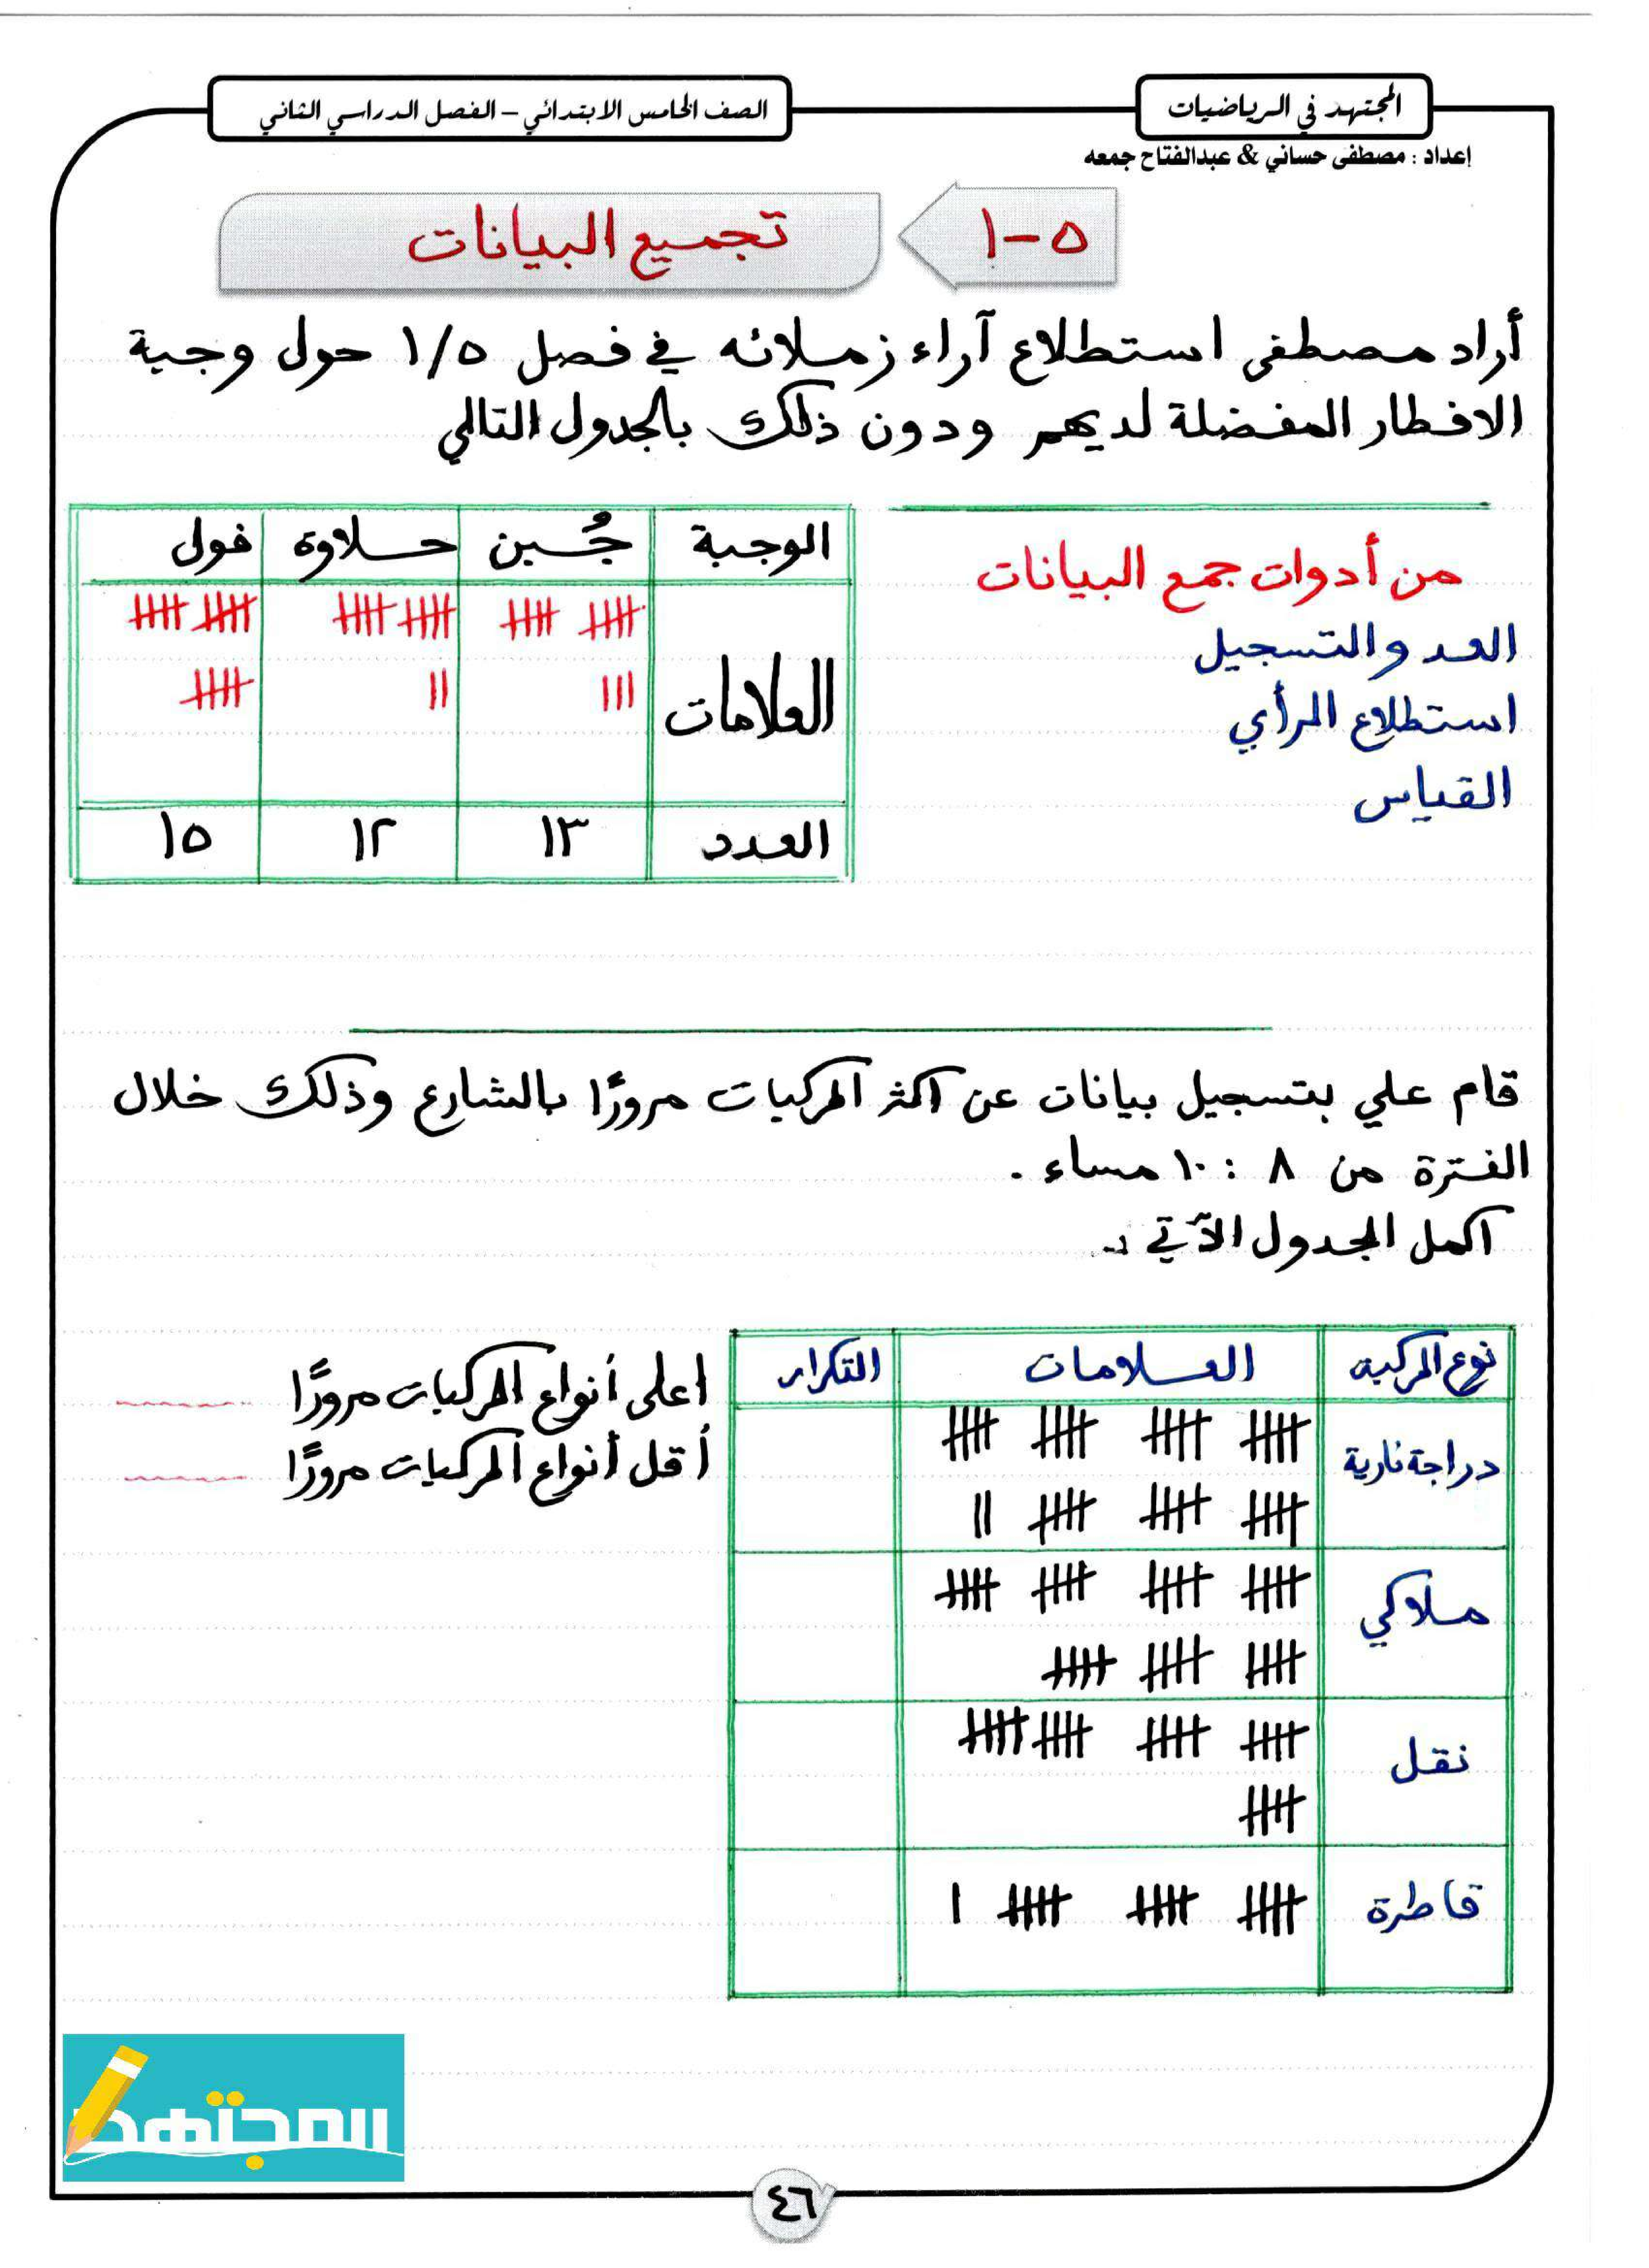 المجتهد في الرياضيات
الصف الخامس الابتدائي – الفصل الدراسي الثاني
إعداد : مصطفى حساني & عبدالفتاح جمعه
٥-١
تجميع البيانات
أراد مصطفى استطلاع آراء زملائه في فصل ١/٥ حول وجبة
الافطار المفضلة لديهم ودون ذلك بالجدول التالي
من أدوات جمع البيانات
العد والتسجيل
استطلاع الرأي
القياس
الوجبة جُبن حلاوة فول
العلامات
العدد ١٣ ١٢ ١٥
قام علي بتسجيل بيانات عن اكثر المركبات مرورًا بالشارع وذلك خلال
الفترة من ٨ : ١٠ مساء .
اكمل الجدول الآتي :-
نوع المركبة العلامات التكرار
دراجة نارية
ملاكي
نقل
قاطرة
اعلى أنواع المركبات مرورًا
أقل أنواع المركبات مرورًا
المجتهد
٤٦